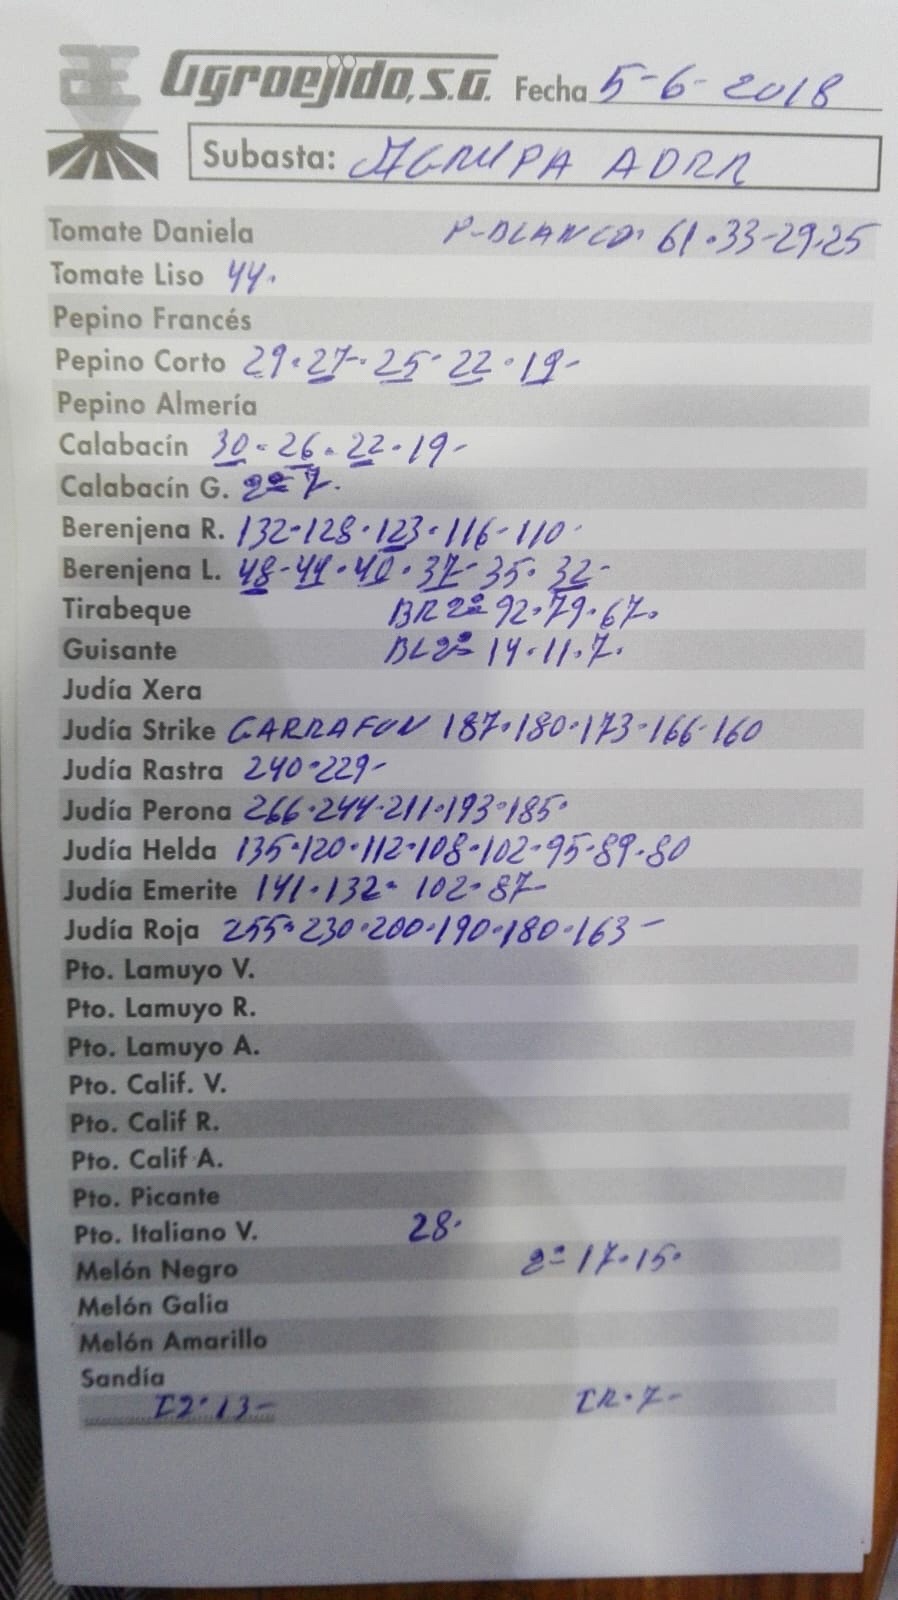 Agroejido, S.A. Fecha 5-6-2018
Subasta: AGRUPA ADRA
Tomate Daniela P-BLANCO· 61·33-29·25
Tomate Liso 44·
Pepino Francés
Pepino Corto 29·27·25·22·19-
Pepino Almería
Calabacín 30-26·22·19-
Calabacín G. 2ª 7·
Berenjena R. 132-128·123·116-110·
Berenjena L. 48-44·40·37-35·32-
Tirabeque BR 2ª 92·79·67·
Guisante BL 2ª 14·11·7·
Judía Xera
Judía Strike GARRAFON 187·180·173·166·160
Judía Rastra 240·229-
Judía Perona 266·244·211·193·185·
Judía Helda 135·120·112·108·102-95·89·80
Judía Emerite 141·132· 102·87-
Judía Roja 255·230·200·190·180·163-
Pto. Lamuyo V.
Pto. Lamuyo R.
Pto. Lamuyo A.
Pto. Calif. V.
Pto. Calif R.
Pto. Calif A.
Pto. Picante
Pto. Italiano V. 28·
Melón Negro 2ª 17·15·
Melón Galia
Melón Amarillo
Sandía
I2·13- IR·7-